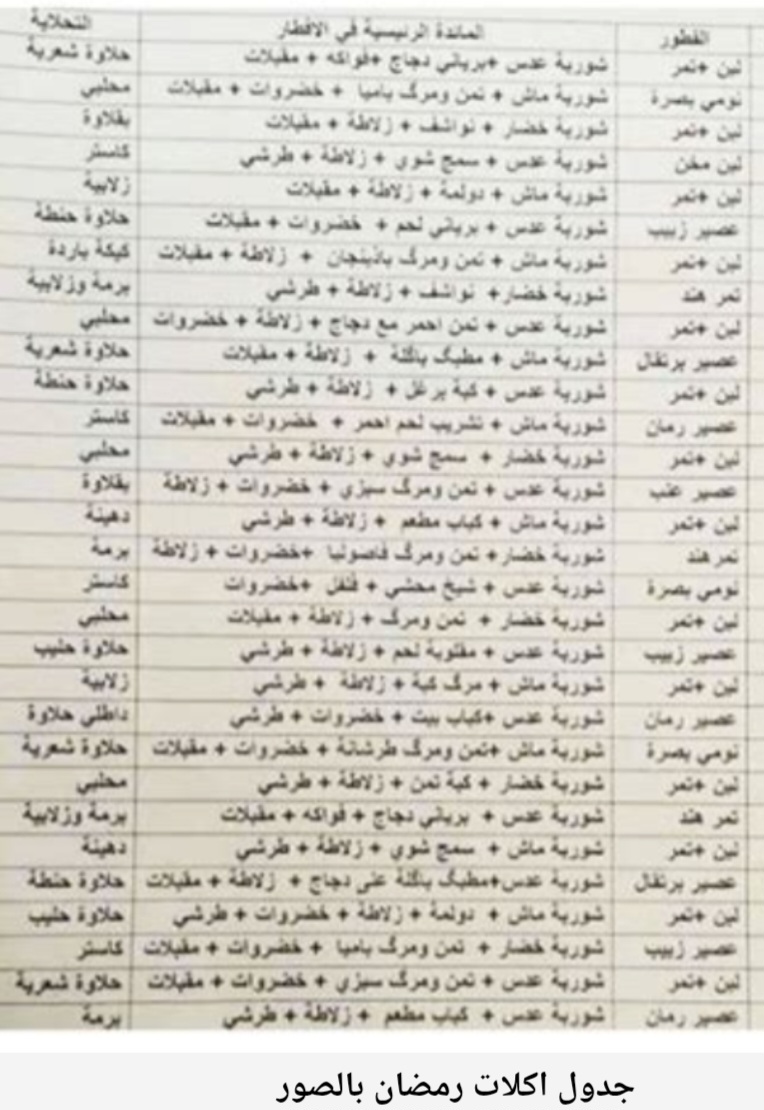 الفطور المائدة الرئيسية في الافطار التحلاية
لبن +تمر شوربة عدس +برياني دجاج +فواكه + مقبلات حلاوة شعرية
نومي بصرة شوربة ماش + تمن ومرگ باميا + خضروات + مقبلات محلبي
لبن +تمر شوربة خضار + نواشف + زلاطة + مقبلات بقلاوة
لبن شوربة عدس + سمچ شوي + زلاطة + طرشي كاستر
لبن +تمر شوربة ماش + دولمة + زلاطة + مقبلات زلابية
عصير زبيب شوربة عدس + برياني لحم + خضروات + مقبلات حلاوة حنطة
لبن +تمر شوربة ماش + تمن ومرگ باذينجان + زلاطة + مقبلات كيكة باردة
تمر هند شوربة خضار+ نواشف + زلاطة + طرشي برمة وزلابية
لبن +تمر شوربة عدس + تمن احمر مع دجاج + زلاطة + خضروات محلبي
عصير برتقال شوربة ماش + مطبگ باگلة + زلاطة + مقبلات حلاوة شعرية
لبن +تمر شوربة عدس + كبة برغل + زلاطة + طرشي حلاوة حنطة
عصير رمان شوربة ماش + تشريب لحم احمر + خضروات + مقبلات كاستر
لبن +تمر شوربة خضار + سمچ شوي + زلاطة + طرشي محلبي
عصير عنب شوربة عدس + تمن ومرگ سبزي + خضروات + زلاطة بقلاوة
لبن +تمر شوربة ماش + كباب مطعم + زلاطة + طرشي دهينة
تمر هند شوربة خضار+ تمن ومرگ فاصوليا +خضروات + زلاطة برمة
نومي بصرة شوربة عدس + شيخ محشي + فلفل +خضروات كاستر
لبن +تمر شوربة خضار + تمن ومرگ + زلاطة + مقبلات محلبي
عصير زبيب شوربة عدس + مقلوبة لحم + زلاطة + طرشي حلاوة حليب
لبن +تمر شوربة ماش + مرگ كبة + زلاطة + طرشي زلابية
عصير رمان شوربة عدس +كباب بيت + خضروات + طرشي داطلي حلاوة
نومي بصرة شوربة ماش +تمن ومرگ طرشانة + خضروات + مقبلات حلاوة شعرية
لبن +تمر شوربة خضار + كبة تمن + زلاطة + طرشي محلبي
تمر هند شوربة عدس + برياني دجاج + فواكه + مقبلات برمة وزلابية
لبن +تمر شوربة ماش + سمچ شوي + زلاطة + طرشي دهينة
عصير برتقال شوربة عدس+مطبگ باگلة على دجاج + زلاطة + مقبلات حلاوة حنطة
لبن +تمر شوربة ماش + دولمة + زلاطة + خضروات + طرشي حلاوة حليب
عصير زبيب شوربة خضار + تمن ومرگ باميا + خضروات + مقبلات كاستر
لبن +تمر شوربة عدس + تمن ومرگ سبزي + خضروات + مقبلات حلاوة شعرية
عصير رمان شوربة عدس + كباب مطعم + زلاطة + طرشي برمة
جدول اكلات رمضان بالصور